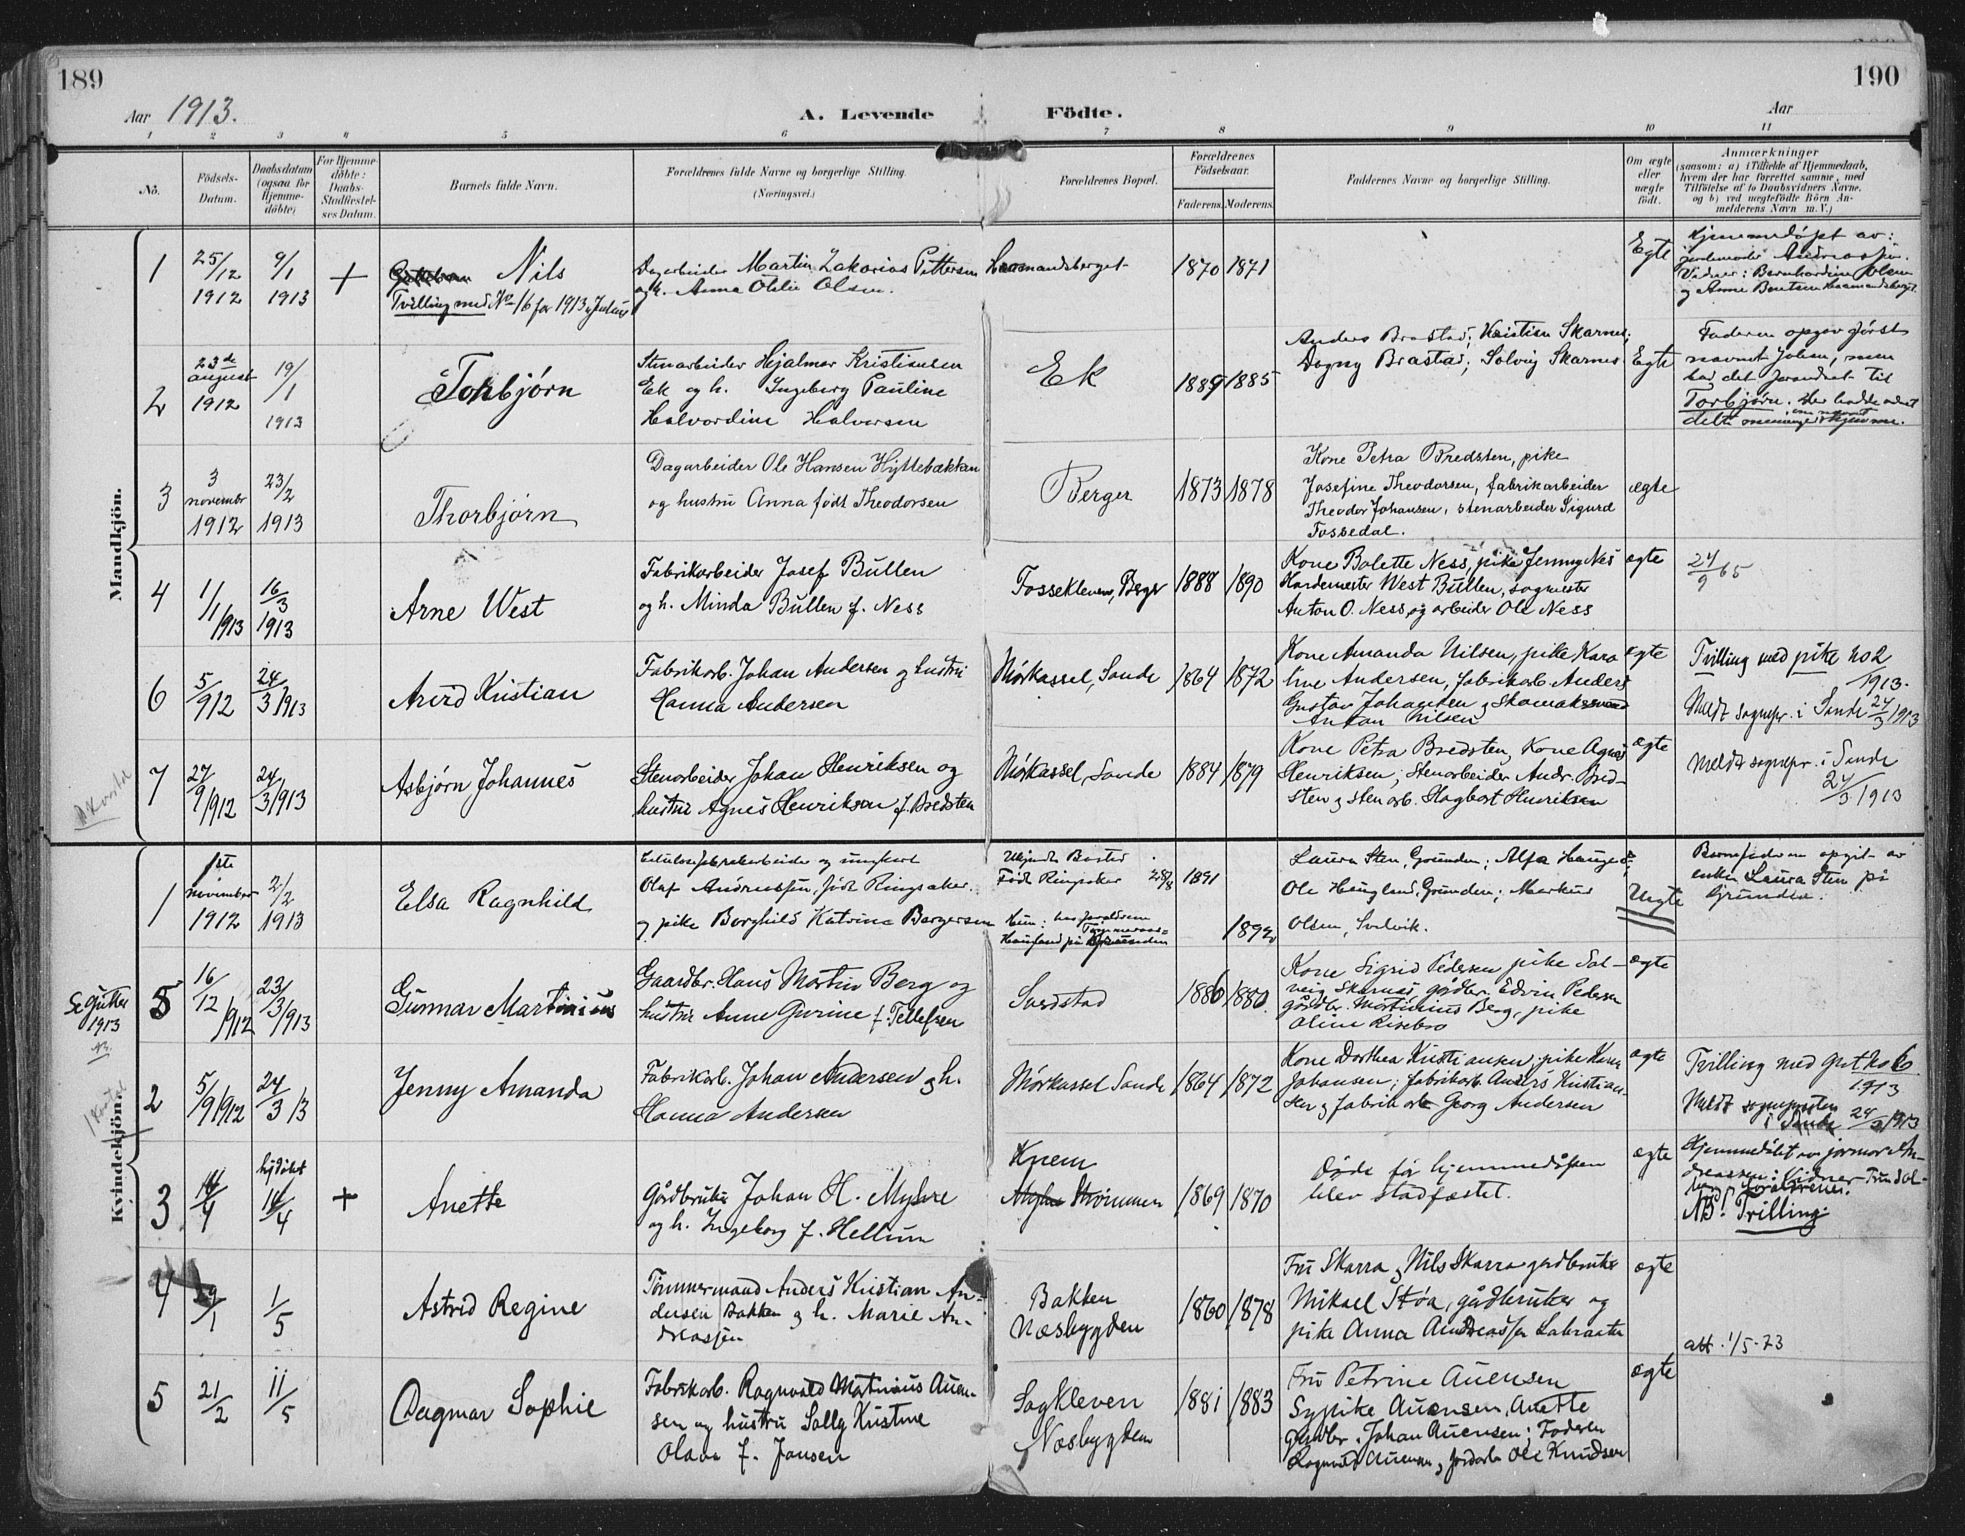 189
190
Aar 1913.
A. Levende
Födte.
Aar
1 2 3 4 5 6 7 8 9 10 11
No.
Födsels-
Datum.
Daabsdatum
(ogsaa for
Hjemme-
döbte)
For Hjemme-
döbte:
Daabs-
Stadfæstel-
ses Datum.
Barnets fulde Navn.
Forældrenes fulde Navne og borgerlige Stilling.
(Næringsvei.)
Forældrenes Bopæl.
Forældrenes
Födselsaar.
Faderens.
Moderens.
Faddernes Navne og borgerlige Stilling.
Om ægte
eller
uægte
födt.
Anmærkninger
(saasom: a) i Tilfælde af Hjemmedaab,
hvem der har forrettet samme, med
Tilföielse af to Daabsvidners Navne.
og b) ved uægtefödte Börn An-
melderens Navn m. V.)
Mandkjön.
1
25/12
1912
9/1
1913
+
Nils
Tvilling med No 16 for 1913, Julius
Dagarbeider Martin Zakarias Pettersen
og h. Anna Otilie Olsen.
Haamandsberget
1870
1871
Egte
Hjemmedøpt av:
jordmoder Andreassen.
Vidner: Bernhardine Olsen
og Anne Bentsen Haamandsberget
2
23de
august
1912
19/1
1913
Torbjørn
Stenarbeider Hjalmar Kristiansen
Ek og h. Ingeborg Pauline
Halvordine Halvorsen
Ek
1889
1885
Anders Brastad; Kristian Skarnes;
Dagny Brastad; Solveig Skarnes
Egte
Faderen opgav først
navnet Johan, men
bad det forandret til
Torbjørn.
3
3
november
1912
23/2
1913
Thorbjørn
Dagarbeider Ole Hansen Hyttebakken
og hustru Anna født Theodorsen
Berger
1873
1878
Kone Petra Bredsten, pike
Josefine Theodorsen, fabrikarbeider
Theodor Johansen, stenarbeider Sigurd
Fossedal.
ægte
4
1/1 1913
16/3
1913
Arne West
Fabrikarbeider Josef Bullen
og h. Minda Bullen f. Ness
Fossekleven, Berger
1888
1890
Kone Bolette Ness, pike Jenny Nes
West Bullen, sogmester
Anton O. Ness, og arbeider Ole Ness
ægte
24/9 65
6
5/9 12
24/3 1913
Arvid Kristian
Fabrikarb. Johan Andersen og hustru
Hanna Andersen
Mørkassel, Sande
1864
1872
Kone Amanda Nilsen, pike Karo
line Andersen, fabrikarb. Anders
Gustav Johansen og Skomaker
Anton Nilsen
ægte
Tvilling med pike no 2
1913.
Meldt sognepr. i Sande 24/3 1913
7
27/9 1912
24/3 1913
Asbjørn Johannes
Stenarbeider Johan Henriksen og
hustru Agnes Henriksen f. Bredsten
Mørkassel, Sande
1884
1879
Kone Petra Bredsten, Kone Agnes
Henriksen; Stenarbeider Andr. Bred-
sten og sten arb. Hagbart Henriksen
ægte
Meldt sognepr. i Sande
24/3 1913
Kvindekjön.
1
1ste
november
1912
2/2
1913
Elsa Ragnhild
Celulosefabrikarbeider og ungkarl
Olaf Andreassen, født Ringsaker.
og pike Borghild Katrine Børgersen
Ukjendt Bosted.
Født Ringsaker
Hun: hos forældrene
1891
1892
Laura Sten, Grunden; Alfa Haugland;
Ole Haugland, Grunden; Markus
Olsen, Svelvik.
Uegte
Barnefaderen opgit av
enken Laura Sten på
Grunden.
Se gutter
1913
5
16/12 1912
23/3 1913
Gunnar Martinius
Gaardbr. Hans Martin Berg og
hustru Anne Gurine f. Tellefsen
Sverdstad
1886
1880
Kone Sigrid Pedersen pike Sol-
veig Skarnæs gårdbr. Edvin Pedersen
gårdbr. Martinius Berg, pike
Oline Risebro
ægte
2
5/9 1912
24/3 13
Jenny Amanda
Fabrikarb. Johan Andersen og h.
Hanna Andersen
Mørkassel Sande
1864
1872
Kone Dorthea Kristiansen, pike Karen
Johansen; fabrikarb Anders Kristian-
sen og fabrik arb Georg Andersen
ægte
Tvilling med gut no 6
1913
Meldt sognepresten
i Sande 24/3 1913
3
14/4
hjdøbt
14/4
+
Anette
Gårdbruker Johan H. Myhre
og h. Ingeborg f. Hellum
Knem
Strømmen
1869
1870
Døde før hjemmedåpen
blev stadfæstet.
ægte
Hjemmedøbt av jormor An-
dreassen; Vidner
forældrene.
NB! Trilling.
4
29/1
1/5
Astrid Regine
Tømmermand Anders Kristian An-
dersen Bakken og h. Marie An-
dreassen
Bakken
Næsbygden
1860
1878
Fru Skarra og Nils Skarra gårdbruker
Mikael Støa, gårdbruker og
pike Anna Andreassen
ægte
att. 1/5-23
5
21/2
11/5
Dagmar Sophie
Fabrikarb. Ragnvald Matinius Auen-
sen og hustru Solly Kristine
Olava f. Jansen
Sagkleven
Næsbygden
1881
1883
Fru Petrine Auensen
Sypike Auensen, Anette
Gardbr. Johan Auensen; Faderen
Ragnvald Auensen og Ole Knudsen
ægte